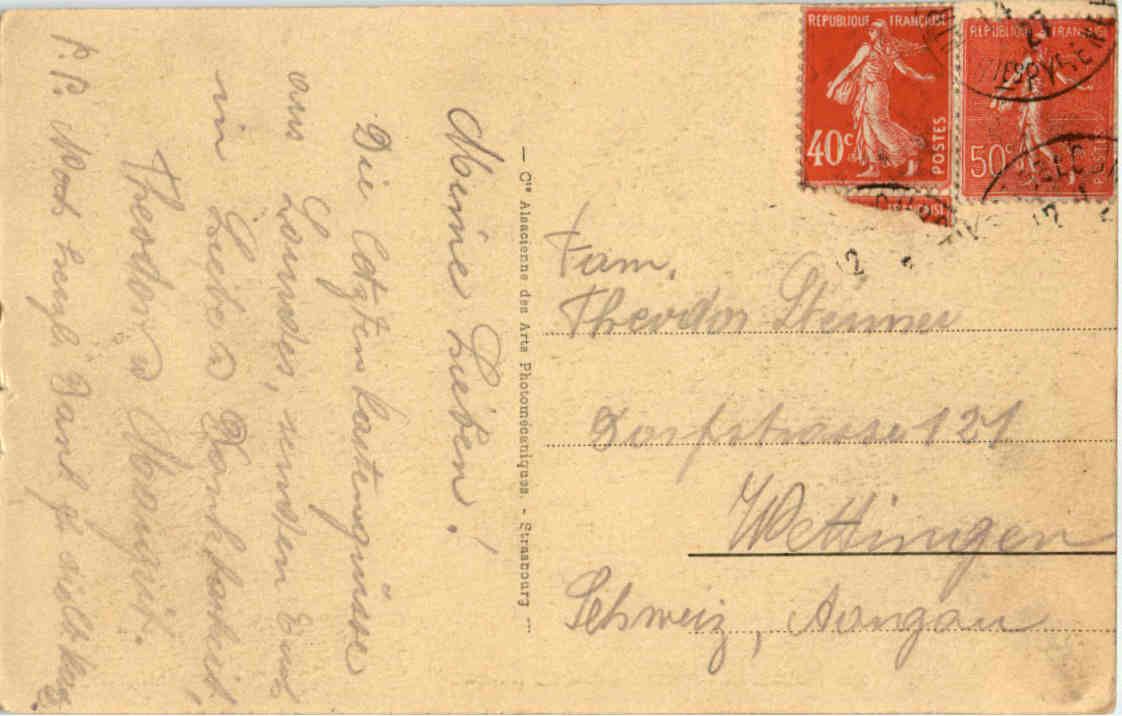 Meine Lieben!
Die Letzten Kartengrüsse
aus Lourdes, senden Euch
in Liebe u Dankbarkeit,
Theodor u Margrit.
P.P. Noch herzl. Dank f
Cie Alsacienne des Arts Photomécaniques. - Strasbourg
REPUBLIQUE FRANÇAISE
40c
POSTES
REPUBLIQUE FRANÇAISE
50c
POSTES
27
PYRENEES
12
Fam.
Theodor Steimer
Dorfstrasse 121
Wettingen
Schweiz, Aargau